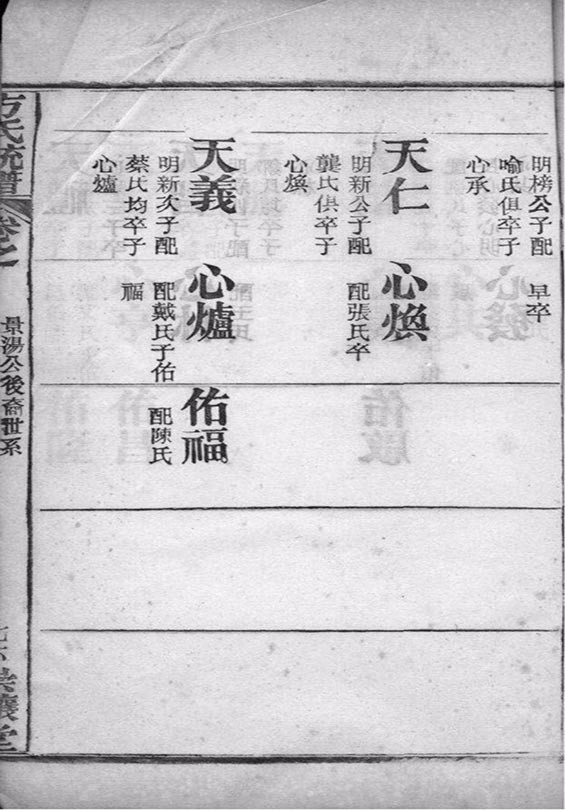 明榜公子配
喻氏俱卒子
心承
早卒
天仁
明新公子配
龔氏俱卒子
心煥
心煥
配張氏卒
天義
明新次子配
蔡氏均卒子
心爐
心爐
配戴氏子佑
福
佑福
配陳氏
方氏統譜
卷之
景湯公後裔世系